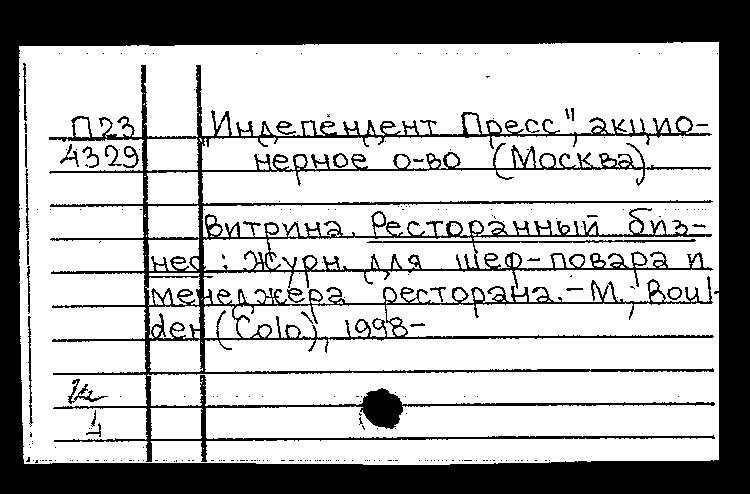 П23
4329
"Индепендент Пресс", акцио-
нерное о-во (Москва).
Витрина. Ресторанный биз-
нес : журн. для шеф-повара и
менеджера ресторана. – М.; Boul-
der (Colo), 1998–
4